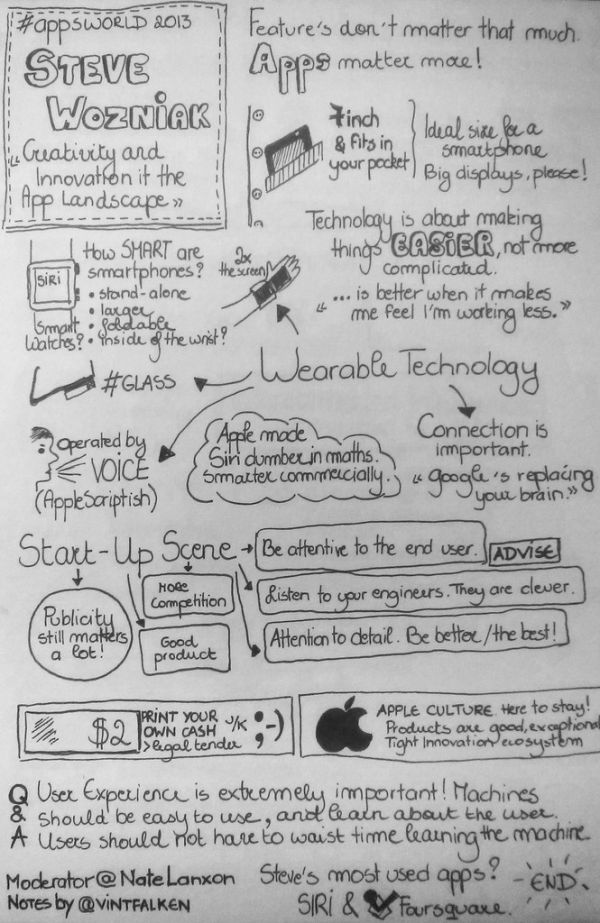 #appsworld 2013
STEVE
WOZNIAK
"Creativity and
Innovation it the
App Landscape"
Feature's don't matter that much.
Apps matter more!
7inch
& fits in
your pocket
Ideal size for a
smartphone
Big displays, please!
Technology is about making
things EASIER, not more
complicated.
"... is better when it makes
me feel I'm working less."
How SMART are
smartphones?
• stand-alone
• larger
• foldable
• inside of the wrist?
SIRI
Smart
Watches?
2x
the screen
Wearable Technology
#GLASS
Operated by
VOICE
(AppleScriptish)
Apple made
Siri dumber in maths.
Smarter commercially.
Connection is
important.
"google's replacing
your brain."
Start-Up Scene
Be attentive to the end user.
ADVISE
Listen to your engineers. They are clever.
Attention to detail. Be better/the best!
Publicity
still matters
a lot!
More
Competition
Good
product
$2
PRINT YOUR
OWN CASH
>legal tender
J/K ;-)
APPLE CULTURE. Here to stay!
Products are good, exceptional
Tight Innovation ecosystem
Q & A
User Experience is extremely important! Machines
should be easy to use, and learn about the user.
Users should not have to waist time learning the machine
Moderator @NateLanxon
Notes by @VINTFALKEN
Steve's most used apps?
SIRI & Foursquare.
END